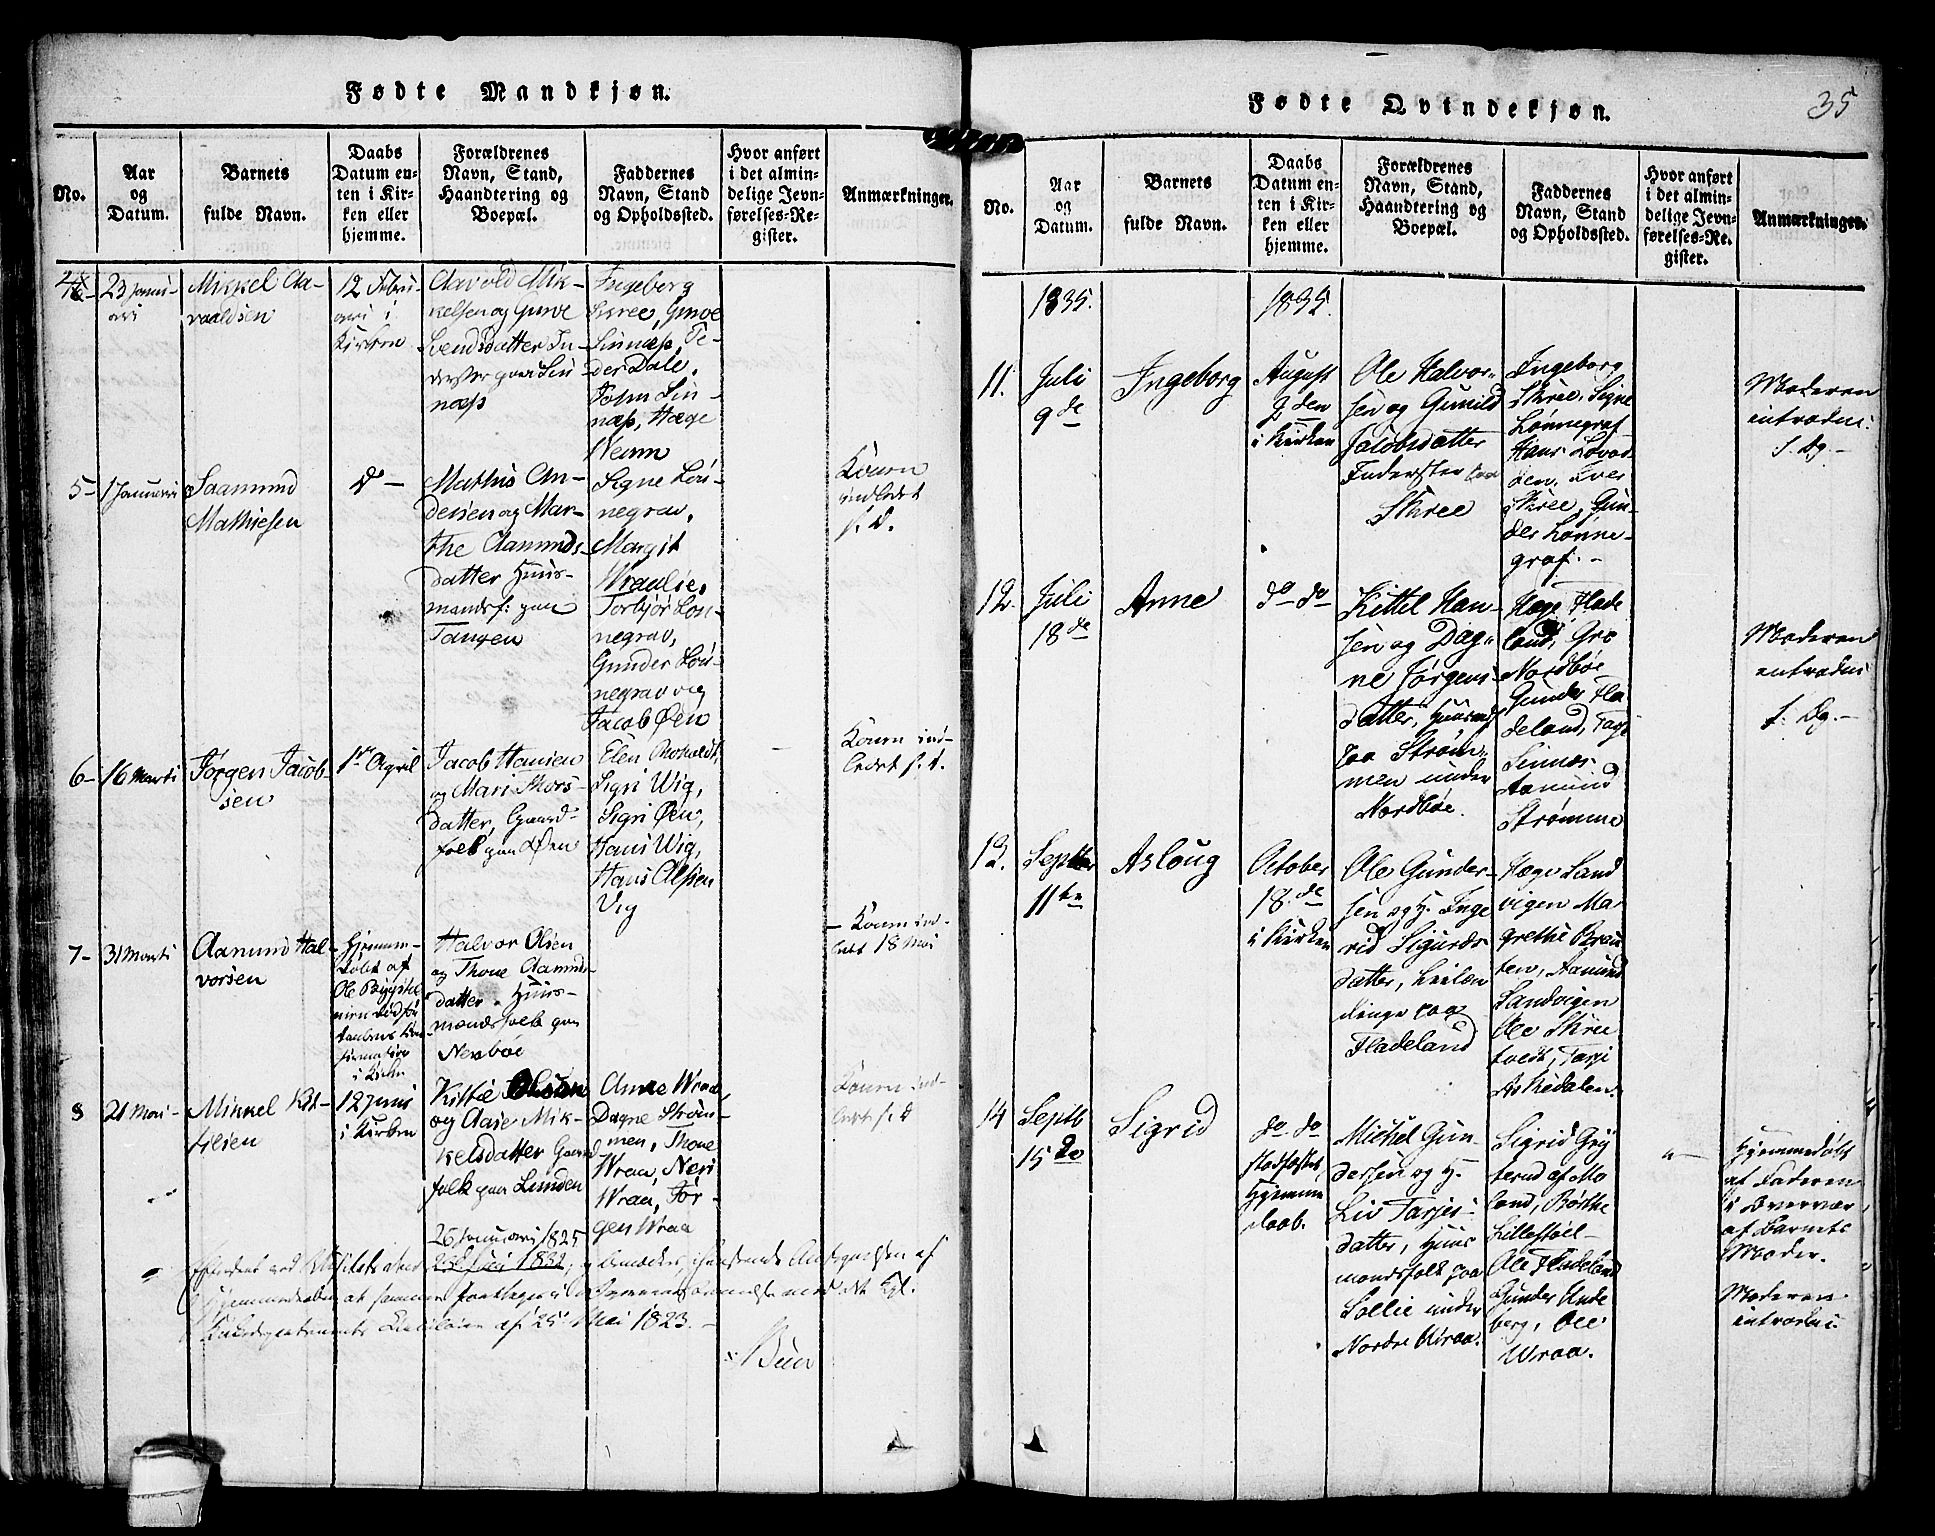 Fødte Mandkjøn.
No.
Aar
og
Datum.
Barnets
fulde Navn.
Daabs
Datum en-
ten i Kir-
ken eller
hjemme.
Forældrenes
Navn, Stand,
Haandtering og
Boepæl.
Faddernes
Navn, Stand
og Opholdssted.
Hvor anført
i det almin-
delige Jevn-
førelses-Re-
gister.
Anmærkninger.
23 Janu-
ari
Mikkel Aa-
vaaldsen
12 Febru-
ari i
Kirken
Aavold Mik-
kelsen og Gunve
Svendsdatter In-
derster paa Sin
næss
Ingeborg
Skree, Gunve
Sinnæss, Pe-
der Dale,
John Sin-
næss, Hæge
5-
1 Januari
Saamund
Mathiesen
d° -
Mathis An-
dersen og Mar-
the Aamunds-
datter Huus-
mandsf: paa
Tangen
Signe Lön-
negrav,
Margit
Wraalie,
Torbjør Lön-
negrav,
Gunder Lön-
negrav og
Jacob Øen
Konen
indledet
s. D.
6-
16 Marti
Jörgen Jacob-
sen
1ste April
Jacob Hansen
og Mari Thors-
datter, Gaard-
folk paa Øen
Elen Aasholdt,
Sigri Wig,
Sigri Øen,
Hans Wig,
Hans Olssen
Vig
Konen ind-
ledet s. d.
7-
31 Marti
Aamund Hal-
vorsen
Hjemme-
döbt af
Ole
i Kirken
Halvor Olsen
og Thone Aamnds-
datter, Huus-
mandsfolk paa
Nesbøe
- Konen ind-
ledet 18 Mai
8
21 Mai-
Mikkel Kit-
tilsen
12 Juni
i Kirken
Kittil Olsen
og Aase Mik-
kelsdatter Gaard
folk paa Lunden
Anne Wraa,
Dagne Ström-
men, Thone
Wraa, Neri
Wraa, Jör-
gen Wraa
Konen ind-
ledet s. D
26 Januari 1825
Efterseet ved Visitats den 23de Juni 1832, og bemærkes,
Hjemmedaaben at
Kirkedepartements Circulaire af 25 Mai 1823. -
Fødte Qvindekjøn.
35
No.
Aar
og
Datum.
Barnets
fulde Navn.
Daabs
Datum en-
ten i Kir-
ken eller
hjemme.
Forældrenes
Navn, Stand,
Haandtering og
Boepæl.
Faddernes
Navn, Stand
og Opholdssted.
Hvor anført
i det almin-
delige Jevn-
førelses-Re-
gister.
Anmærkninger.
1835.
1835.
11.
Juli
9de
Ingeborg
August
9den
i Kirken
Ole Halvor-
sen og Gunild
Jacobsdatter
Inderster paa
Skree
Ingeborg
Skree, Signe
Lønnegraf
Hans Lovod-
den, Iver
Skree, Gun-
der Lønne-
graf. -
Moderen
introduc:
s. Dg. -
12.
Juli
18de
Anne
do do
Kittel Han-
sen og Dag-
ne Jørgens-
datter, Huusmf
paa Strøm-
men under
Nordbøe.
Hæge Flade
land, Gro
Nordbøe
Gunder Fla-
deland, Tarje
Sinnes
Aamund
Strømme
Moderen
introduc:
s. Dg. -
13.
Septbr
11te
Asloug
October
18de
i Kirken
Ole Gunder-
sen og H. Inge
rid Sigurds-
datter, Leilen
dinge paa
Fladeland
Hæge Sand
vigen Ma-
grethe Braa
ten, Aamund
Sandvigen
Ole Skree
tvedt, Tarje
Askedalen.
14
Septb
15de
Sigrid
do do
stadfæstet
Hjemme
daab.
Michel Gun-
dersen og H.
Liv Tarjes-
datter, Huus
mandsfolk paa
Sollie under
Nordre Wraa.
Sigrid Gry
terud af Mo-
land, Birthe
Lillestöel-
Ole Fladeland
Gunder Unde
berg, Ole
Wraa.
Hjemmedöbt
af Faderen
i Overvær
af Barnets
Moder.
Moderen
introduc: